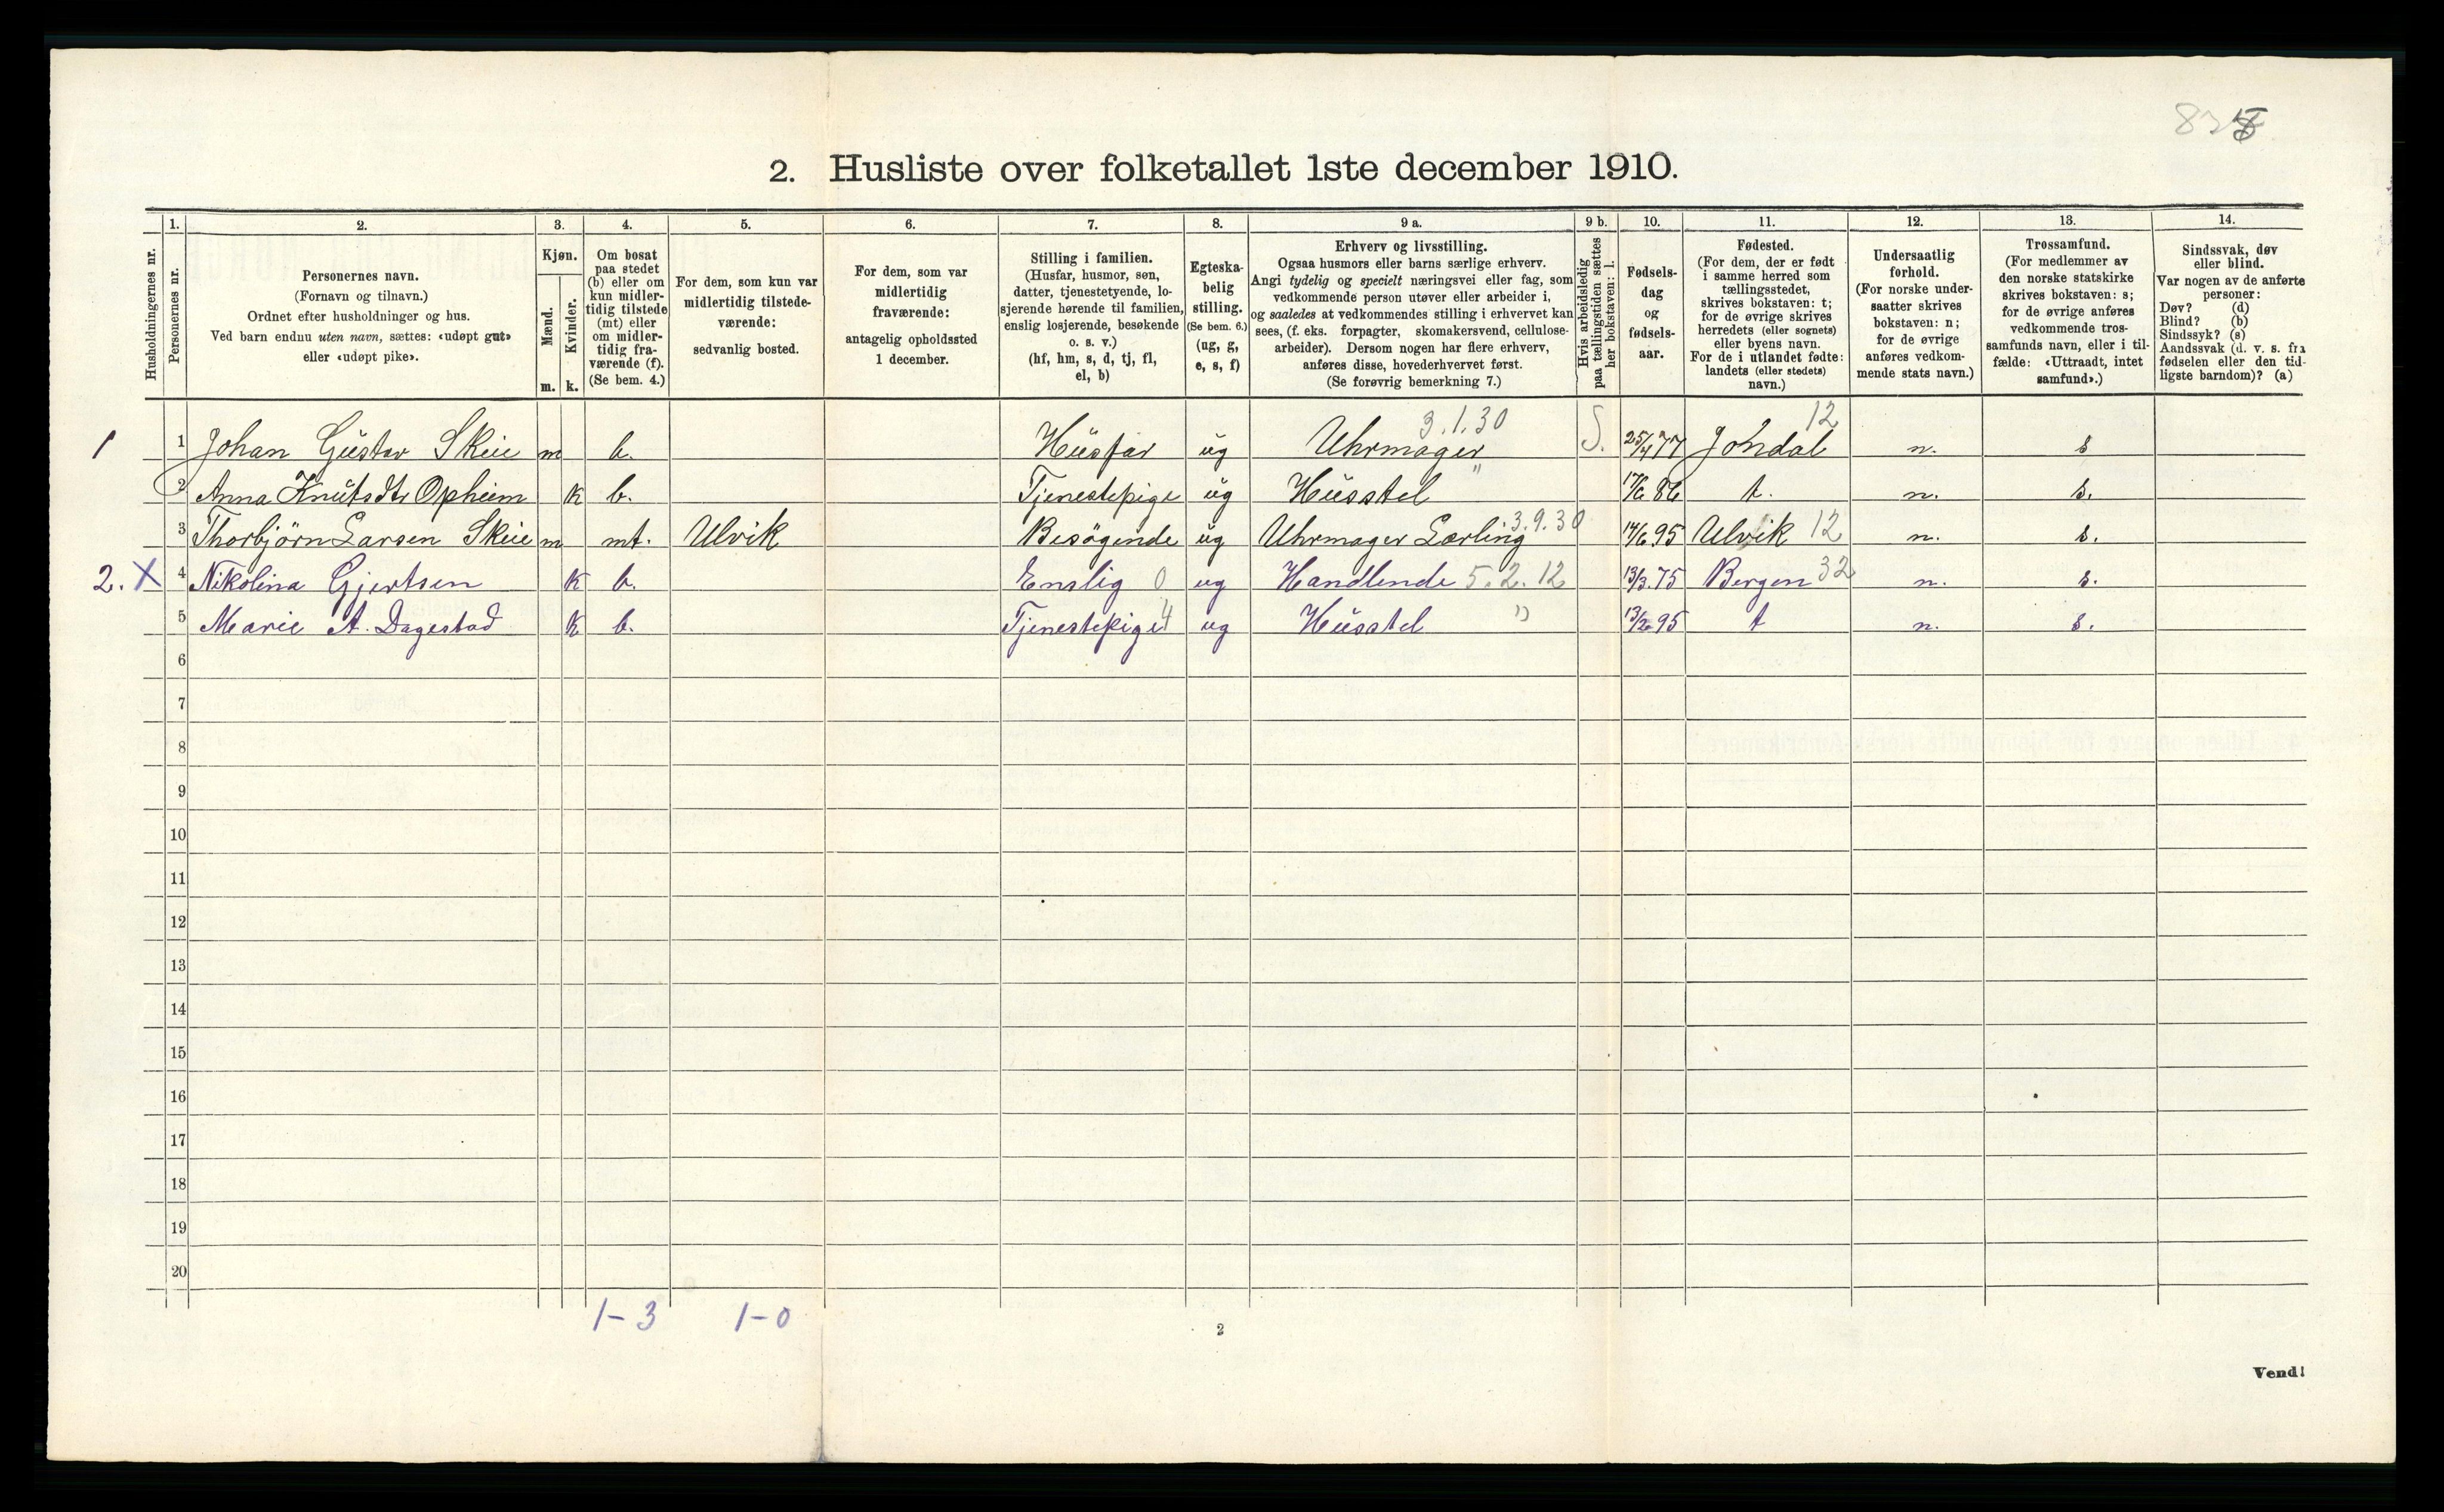 2. Husliste over folketallet 1ste december 1910.
Husholdningernes nr.
1.
Personernes nr.
2.
Personernes navn.
(Fornavn og tilnavn.)
Ordnet efter husholdninger og hus.
Ved barn endnu uten navn, sættes: «udøpt gut»
eller «udøpt pike».
3.
Kjøn.
Mænd.
Kvinder.
m. k.
4.
Om bosat
paa stedet
(b) eller om
kun midler-
tidig tilstede
(mt) eller
om midler-
tidig fra-
værende (f).
(Se bem. 4.)
5.
For dem, som kun var
midlertidig tilstede-
værende:
sedvanlig bosted.
6.
For dem, som var
midlertidig
fraværende:
antagelig opholdssted
1 december.
7.
Stilling i familien.
(Husfar, husmor, søn,
datter, tjenestetyende, lo-
sjerende hørende til familien,
enslig losjerende, besøkende
o. s. v.)
(hf, hm, s, d, tj, fl,
el, b)
8.
Egteska-
belig
stilling.
(Se bem. 6.)
(ug, g,
e, s, f)
9 a.
Erhverv og livsstilling.
Ogsaa husmors eller barns særlige erhverv.
Angi tydelig og specielt næringsvei eller fag, som
vedkommende person utøver eller arbeider i,
og saaledes at vedkommendes stilling i erhvervet kan
sees, (f. eks. forpagter, skomakersvend, cellulose-
arbeider). Dersom nogen har flere erhverv,
anføres disse, hovederhvervet først.
(Se forøvrig bemerkning 7.)
9 b.
Hvis arbeidsledig
paa tællingstiden sættes
her bokstaven: l.
10.
Fødsels-
dag
og
fødsels-
aar.
11.
Fødested.
(For dem, der er født
i samme herred som
tællingsstedet,
skrives bokstaven: t;
for de øvrige skrives
herredets (eller sognets)
eller byens navn.
For de i utlandet fødte:
landets (eller stedets)
navn.)
12.
Undersaatlig
forhold.
(For norske under-
saatter skrives
bokstaven: n;
for de øvrige
anføres vedkom-
mende stats navn.)
13.
Trossamfund.
(For medlemmer av
den norske statskirke
skrives bokstaven: s;
for de øvrige anføres
vedkommende tros-
samfunds navn, eller i til-
fælde: «Uttraadt, intet
samfund».)
14.
Sindssvak, døv
eller blind.
Var nogen av de anførte
personer:
Døv? (d)
Blind? (b)
Sindssyk? (s)
Aandssvak (d. v. s. fra
fødselen eller den tid-
ligste barndom)? (a)
3.1.30 12
1 1 Johan Gustav Skeie m b. Husfar ug Uhrmager S. 25/4 77 Jondal n. s
2 Anna Knutsdtr Opheim k b. Tjenestepige ug Husstel " 17/6 86 t. n. s.
3 Thorbjörn Larsen Skeie m mt. Ulvik Besögende ug Uhrmager Lærling 3.9.30 14/6 95 Ulvik 12 n. s.
2. X 4 Nikolina Gjertsen k b. Enslig 0 ug Handlende 5.2.12 13/3.75 Bergen 32 n. s.
5 Marie A. Dagestad k b. Tjenestepige 4 ug Husstel " 13/2 95 t n. s.
6
7
8
9
10
11
12
13
14
15
16
17
18
19
20
1-3 1-0
2
Vend!